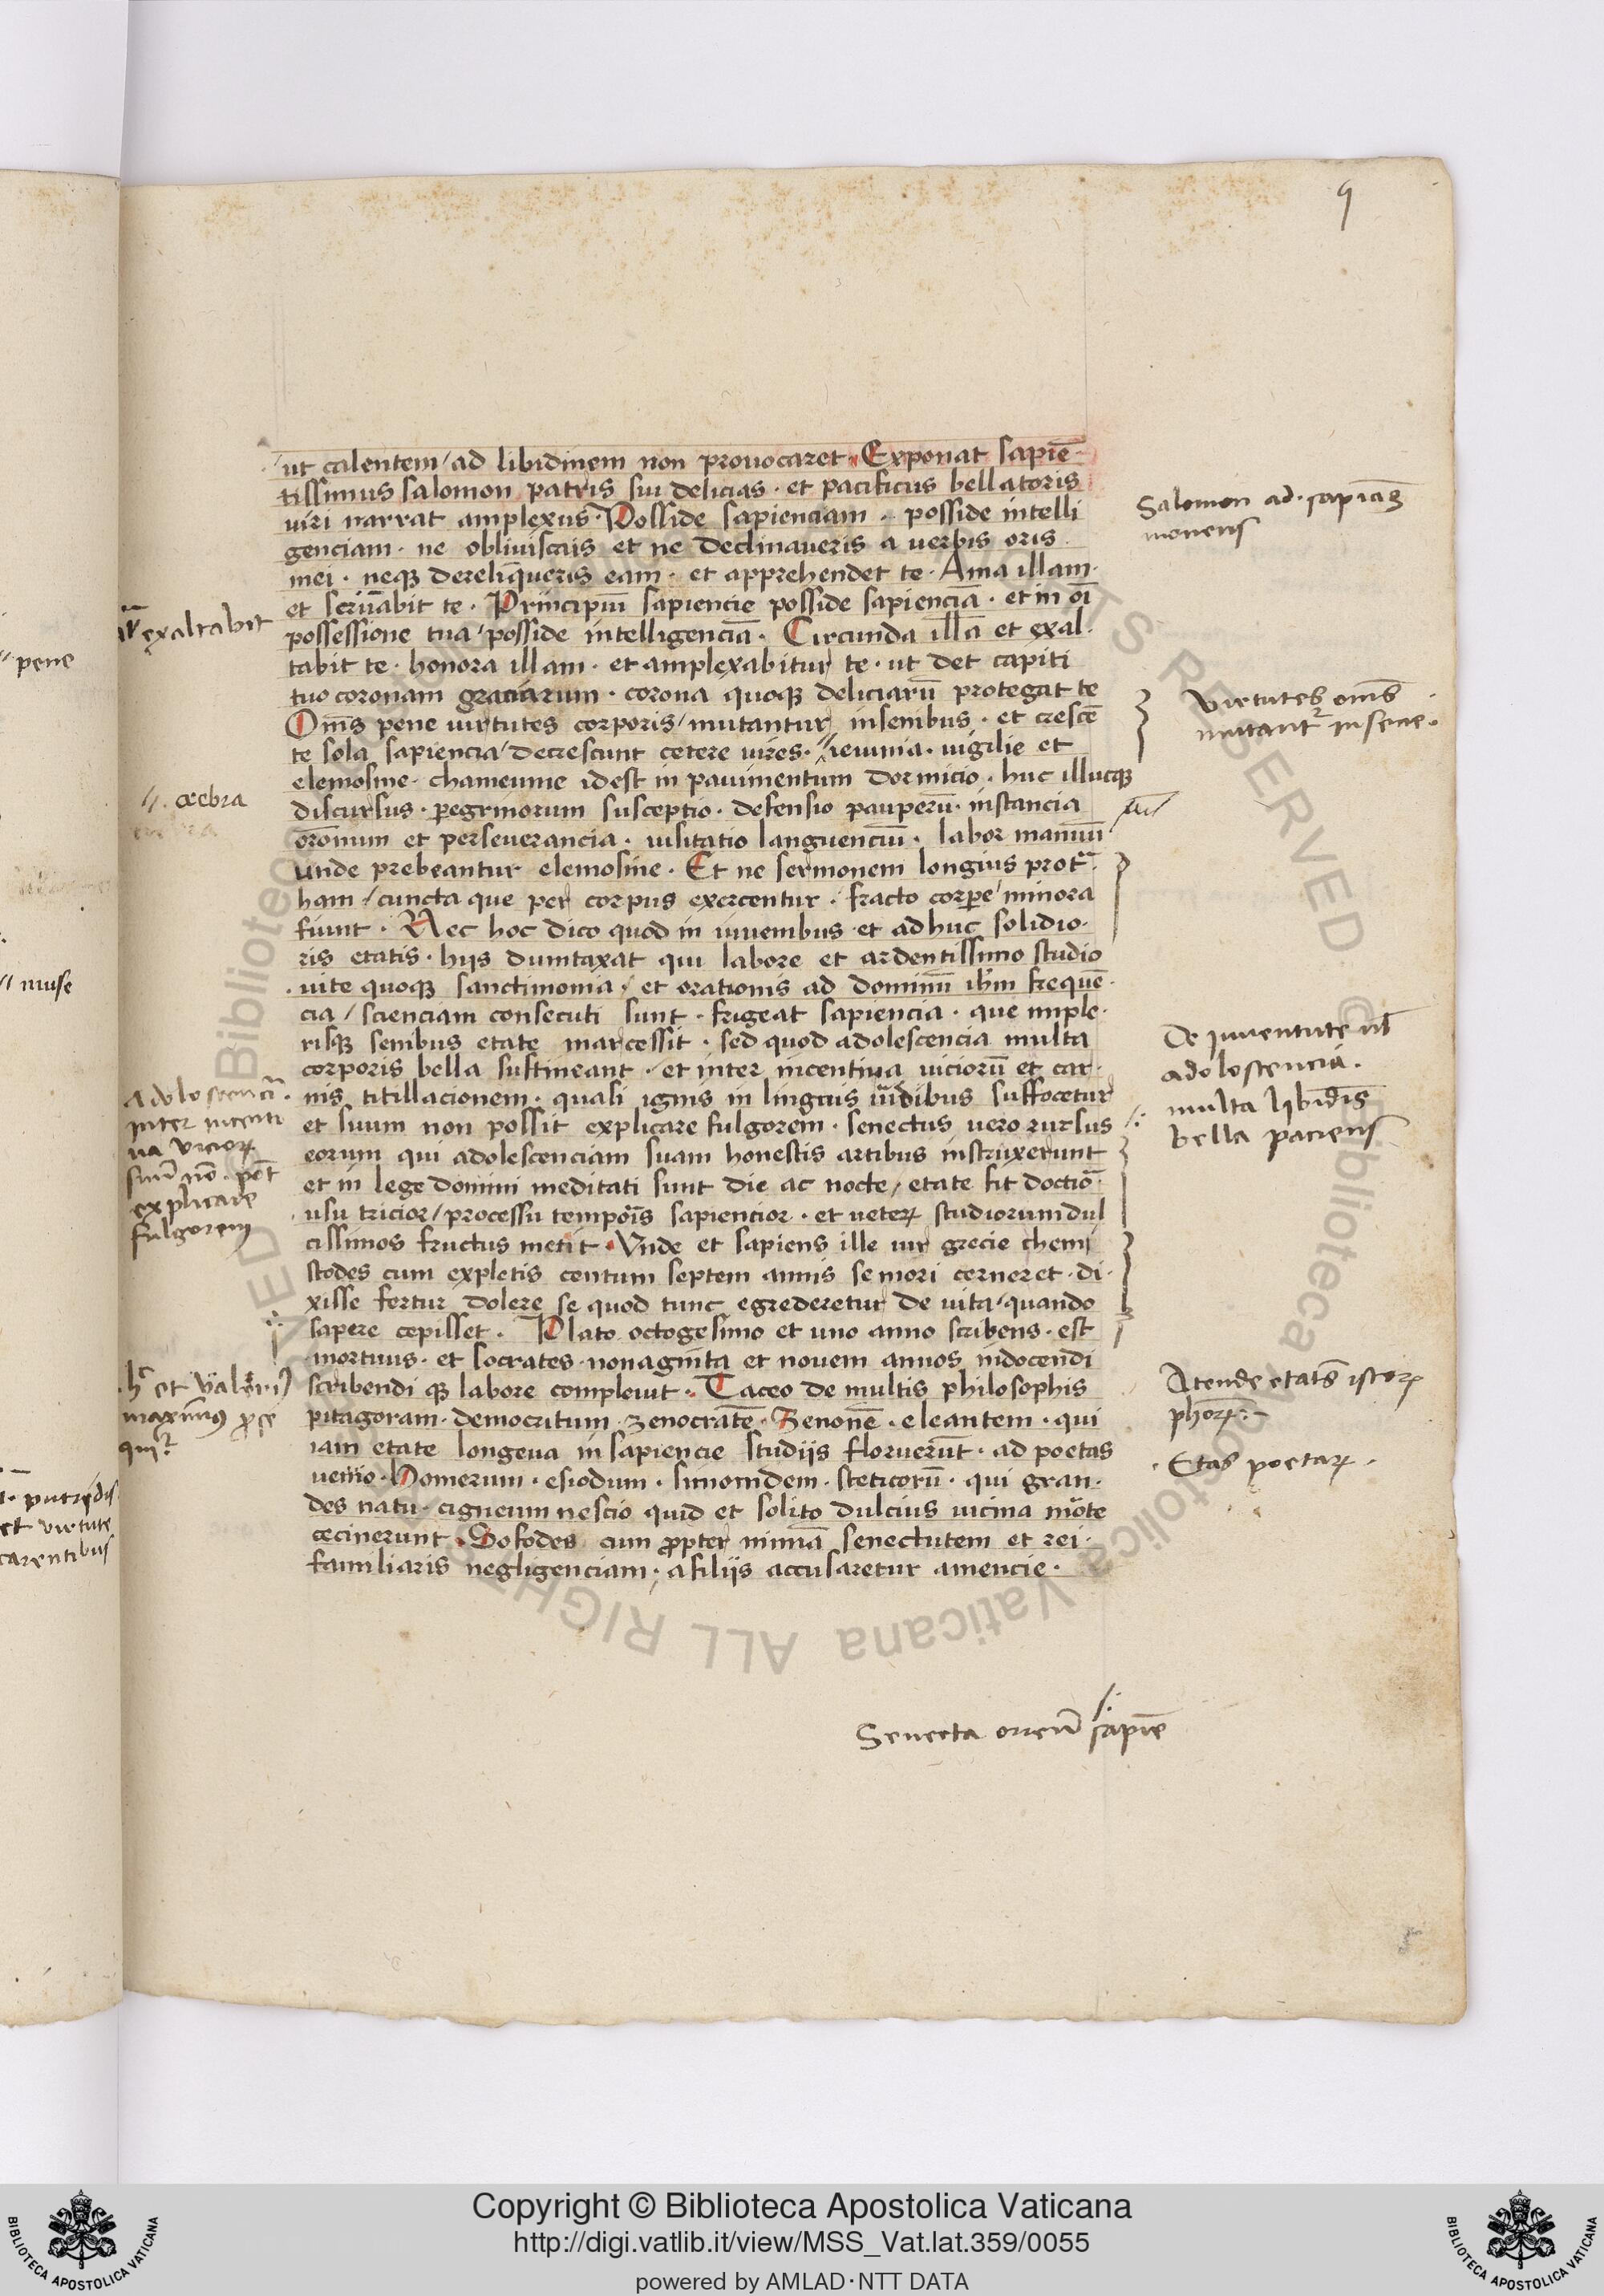 9
ut calentem / ad libidinem non prouocaret · Exponat sapiē-
tissimus salomon patris sui delicias · et pacificus bellatoris
uiri narrat amplexus · Posside sapienciam · posside intelli
genciam · ne obliuiscais et ne declinaueris a uerbis oris
mei · neqꝫ dereliq̄ueris eam · et apprehendet te · Ama illam ·
et seruabit te · Principiū sapiencie posside sapienciā · et in oī
possessione tua / posside intelligenciā · Circunda illā et exal-
tabit te · honora illam · et amplexabitur te · ut det capiti
tuo coronam graciarum · corona quoqꝫ deliciarū protegat te
Om̄s pene uirtutes corporis / mutantur in senibus · et crescē
te sola sapiencia / decrescunt cetere uires · ieiunia · uigilie et
elemosine · chameunie idest in pauimentum dormicio · huc illucqꝫ
discursus · pegrinorum susceptio · defensio pauperū · instancia
orōnum et perseuerancia · uisitatio languenciū · labor manuū
unde prebeantur elemosine · Et ne sermonem longius prot̄a-
ham / cuncta que per corpus exercentur · fracto corpe / minora
fiunt · Nec hoc dico quod in iuuenibus et adhuc solidio-
ris etatis · hijs dumtaxat qui labore et ardentissimo studio
uite quoqꝫ sanctimonia / et orationis ad dominū ihm frequē-
cia / scienciam consecuti sunt · frigeat sapiencia · que in ple-
risqꝫ senibus etate marcessit · sed quod adolescencia multa
corporis bella sustineant · et inter incentiua uiciorū et car-
nis titillacionem · quasi ignis in lingnis uiridibus suffocetur
et suum non possit explicare fulgorem · senectus uero rursus
eorum qui adolescenciam suam honestis artibus instruxerunt
et in lege domini meditati sunt die ac nocte / etate fit doctiō
usu tricior / processu tempōis sapiencior · et ueteꝝ studiorum dul
cissimos fructus metit · Unde et sapiens ille uir grecie themi
stodes cum expletis centum septem annis se mori cerneret · di-
xisse fertur dolere se quod tunc egrederetur de uita / quando
sapere cepisset · Plato octogesimo et uno anno scribens · est
mortuus · et socrates · nonaginta et nouem annos in docendi
scribendi qꝫ labore compleuit · Taceo de multis philosophis
pitagoram · democritum · zenocratē · Zenonē · eleantem · qui
iam etate longeua in sapiencie studijs floruerūt · ad poetas
uenio · Homerum · esiodum · simonidem · steticorū · qui gran-
des natu · cigneum nescio quid et solito dulcius uicina mōte
cecinerunt · Sofodes cum ꝓpter nimiā senectutem et rei-
familiaris negligenciam · a filijs accusaretur amencie ·
Salomon ad · sapiāꝫ
monens
Virtutes om̄s
mutant᷑ in sene ·
De juuentute ul̄
adolescencia ·
multa libidis
bella paciens
Atende etatis istoꝝ
ph̄oꝝ
Etas poetaꝝ ·
exaltabit
crebra
Adolescencia
inter incenti
ua uicioꝝ
suū nō · pōt
explicare
fulgorem
h̄ et Valeri9
maximus
Senecta sapiē
pene
muse
putridis
et virtute
carentibus
Copyright © Biblioteca Apostolica Vaticana
http://digi.vatlib.it/view/MSS_Vat.lat.359/0055
powered by AMLAD·NTT DATA
BIBLIOTECA APOSTOLICA VATICANA
BIBLIOTECA APOSTOLICA VATICANA